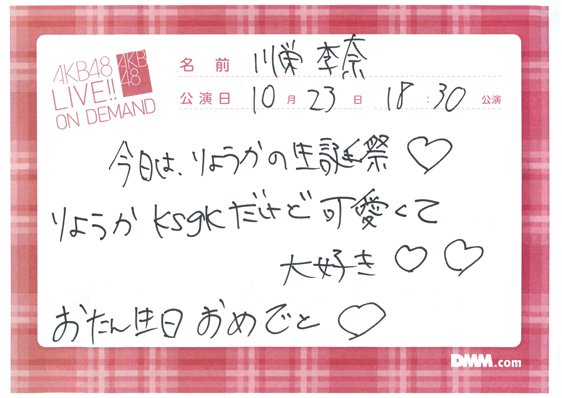 AKB48
LIVE!!
ON DEMAND
AKB
48
名前 川栄李奈
公演日 10月23日 18:30公演
今日は、りょうかの生誕祭♡
りょうかksgkだけど可愛くて
大好き♡♡
おたん生日おめでと♡
DMM.com